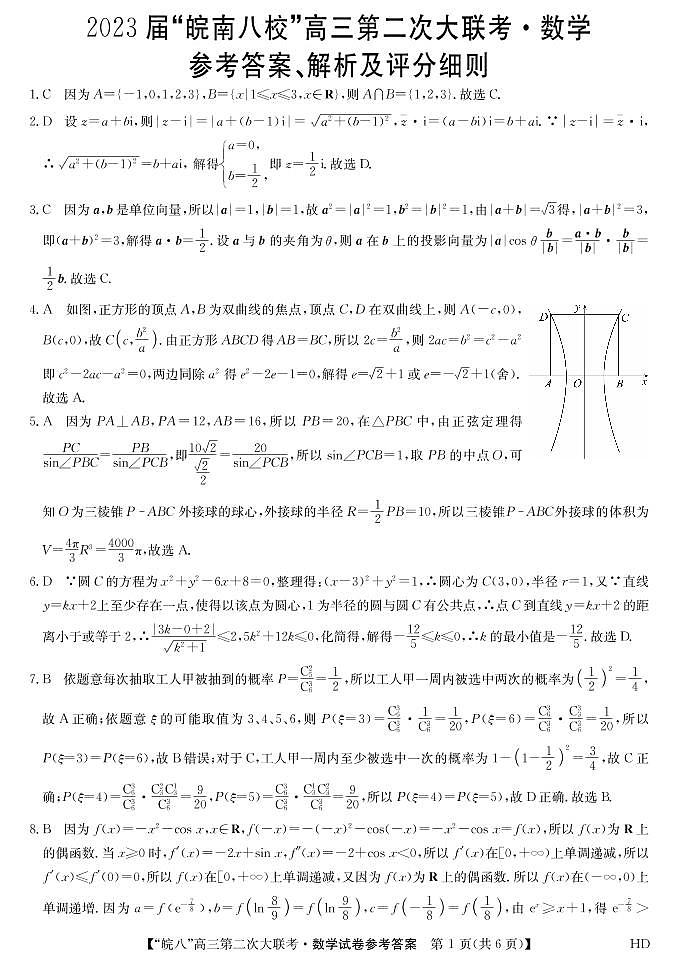 2023 届“皖南八校”高三第二次大联考·数学
参考答案、解析及评分细则
1. C 因为 A={-1,0,1,2,3},B={x|1≤x≤3,x∈R},则 A∩B={1,2,3}. 故选 C.
2. D 设 z=a+bi,则|z-i|=|a+(b-1)i|=√(a²+(b-1)²),z̄·i=(a-bi)i=b+ai. ∵|z-i|=z̄·i,
∴√(a²+(b-1)²)=b+ai, 解得{a=0, b=1/2, 即 z=1/2 i. 故选 D.
3. C 因为 a,b 是单位向量,所以|a|=1,|b|=1,故 a²=|a|²=1,b²=|b|²=1,由|a+b|=√3得,|a+b|²=3,
即(a+b)²=3,解得 a·b=1/2. 设 a 与 b 的夹角为 θ,则 a 在 b 上的投影向量为|a|cos θ b/|b|=a·b/|b|·b/|b|=
1/2 b. 故选 C.
4. A 如图,正方形的顶点 A,B 为双曲线的焦点,顶点 C,D 在双曲线上,则 A(-c,0),
B(c,0),故 C(c,b²/a). 由正方形 ABCD 得 AB=BC,所以 2c=b²/a,则 2ac=b²=c²-a²
即 c²-2ac-a²=0,两边同除 a² 得 e²-2e-1=0,解得 e=√2+1 或 e=-√2+1(舍).
故选 A.
D y C
A O B x
5. A 因为 PA⊥AB,PA=12,AB=16,所以 PB=20,在△PBC 中,由正弦定理得
PC/sin∠PBC=PB/sin∠PCB,即10√2/(√2/2)=20/sin∠PCB,所以 sin∠PCB=1,取 PB 的中点 O,可
知 O 为三棱锥 P-ABC 外接球的球心,外接球的半径 R=1/2 PB=10,所以三棱锥P-ABC外接球的体积为
V=4π/3 R³=4000/3 π,故选 A.
6. D ∵圆 C 的方程为 x²+y²-6x+8=0,整理得:(x-3)²+y²=1,∴圆心为 C(3,0),半径 r=1,又∵直线
y=kx+2上至少存在一点,使得以该点为圆心,1 为半径的圆与圆 C 有公共点,∴点 C 到直线 y=kx+2 的距
离小于或等于 2,∴|3k-0+2|/√(k²+1)≤2,5k²+12k≤0,化简得,解得-12/5≤k≤0,∴k 的最小值是-12/5. 故选 D.
7. B 依题意每次抽取工人甲被抽到的概率 P=C₅²/C₆³=1/2,所以工人甲一周内被选中两次的概率为(1/2)²=1/4,
故 A 正确;依题意 ξ 的可能取值为 3、4、5、6,则 P(ξ=3)=C₆³/C₆³·1/C₆³=1/20,P(ξ=6)=C₆³/C₆³·C₃³/C₆³=1/20,所以
P(ξ=3)=P(ξ=6),故 B 错误;对于 C,工人甲一周内至少被选中一次的概率为 1-(1-1/2)²=3/4,故 C 正
确;P(ξ=4)=C₆³/C₆³·C₃²C₃¹/C₆³=9/20,P(ξ=5)=C₆³/C₆³·C₃¹C₃²/C₆³=9/20,所以 P(ξ=4)=P(ξ=5),故 D 正确. 故选 B.
8. B 因为 f(x)=-x²-cos x,x∈R,f(-x)=-(-x)²-cos(-x)=-x²-cos x=f(x),所以 f(x)为 R 上
的偶函数. 当 x≥0 时,f′(x)=-2x+sin x,f″(x)=-2+cos x<0,所以 f′(x)在[0,+∞)上单调递减,所以
f′(x)≤f′(0)=0,所以 f(x)在[0,+∞)上单调递减,又因为 f(x)为 R 上的偶函数. 所以 f(x)在(-∞,0)上
单调递增. 因为 a=f(e^(-7/8)),b=f(ln 8/9)=f(ln 9/8),c=f(-1/8)=f(1/8),由 eˣ≥x+1,得 e^(-7/8)>
【“皖八”高三第二次大联考·数学试卷参考答案 第 1 页(共 6 页)】 HD